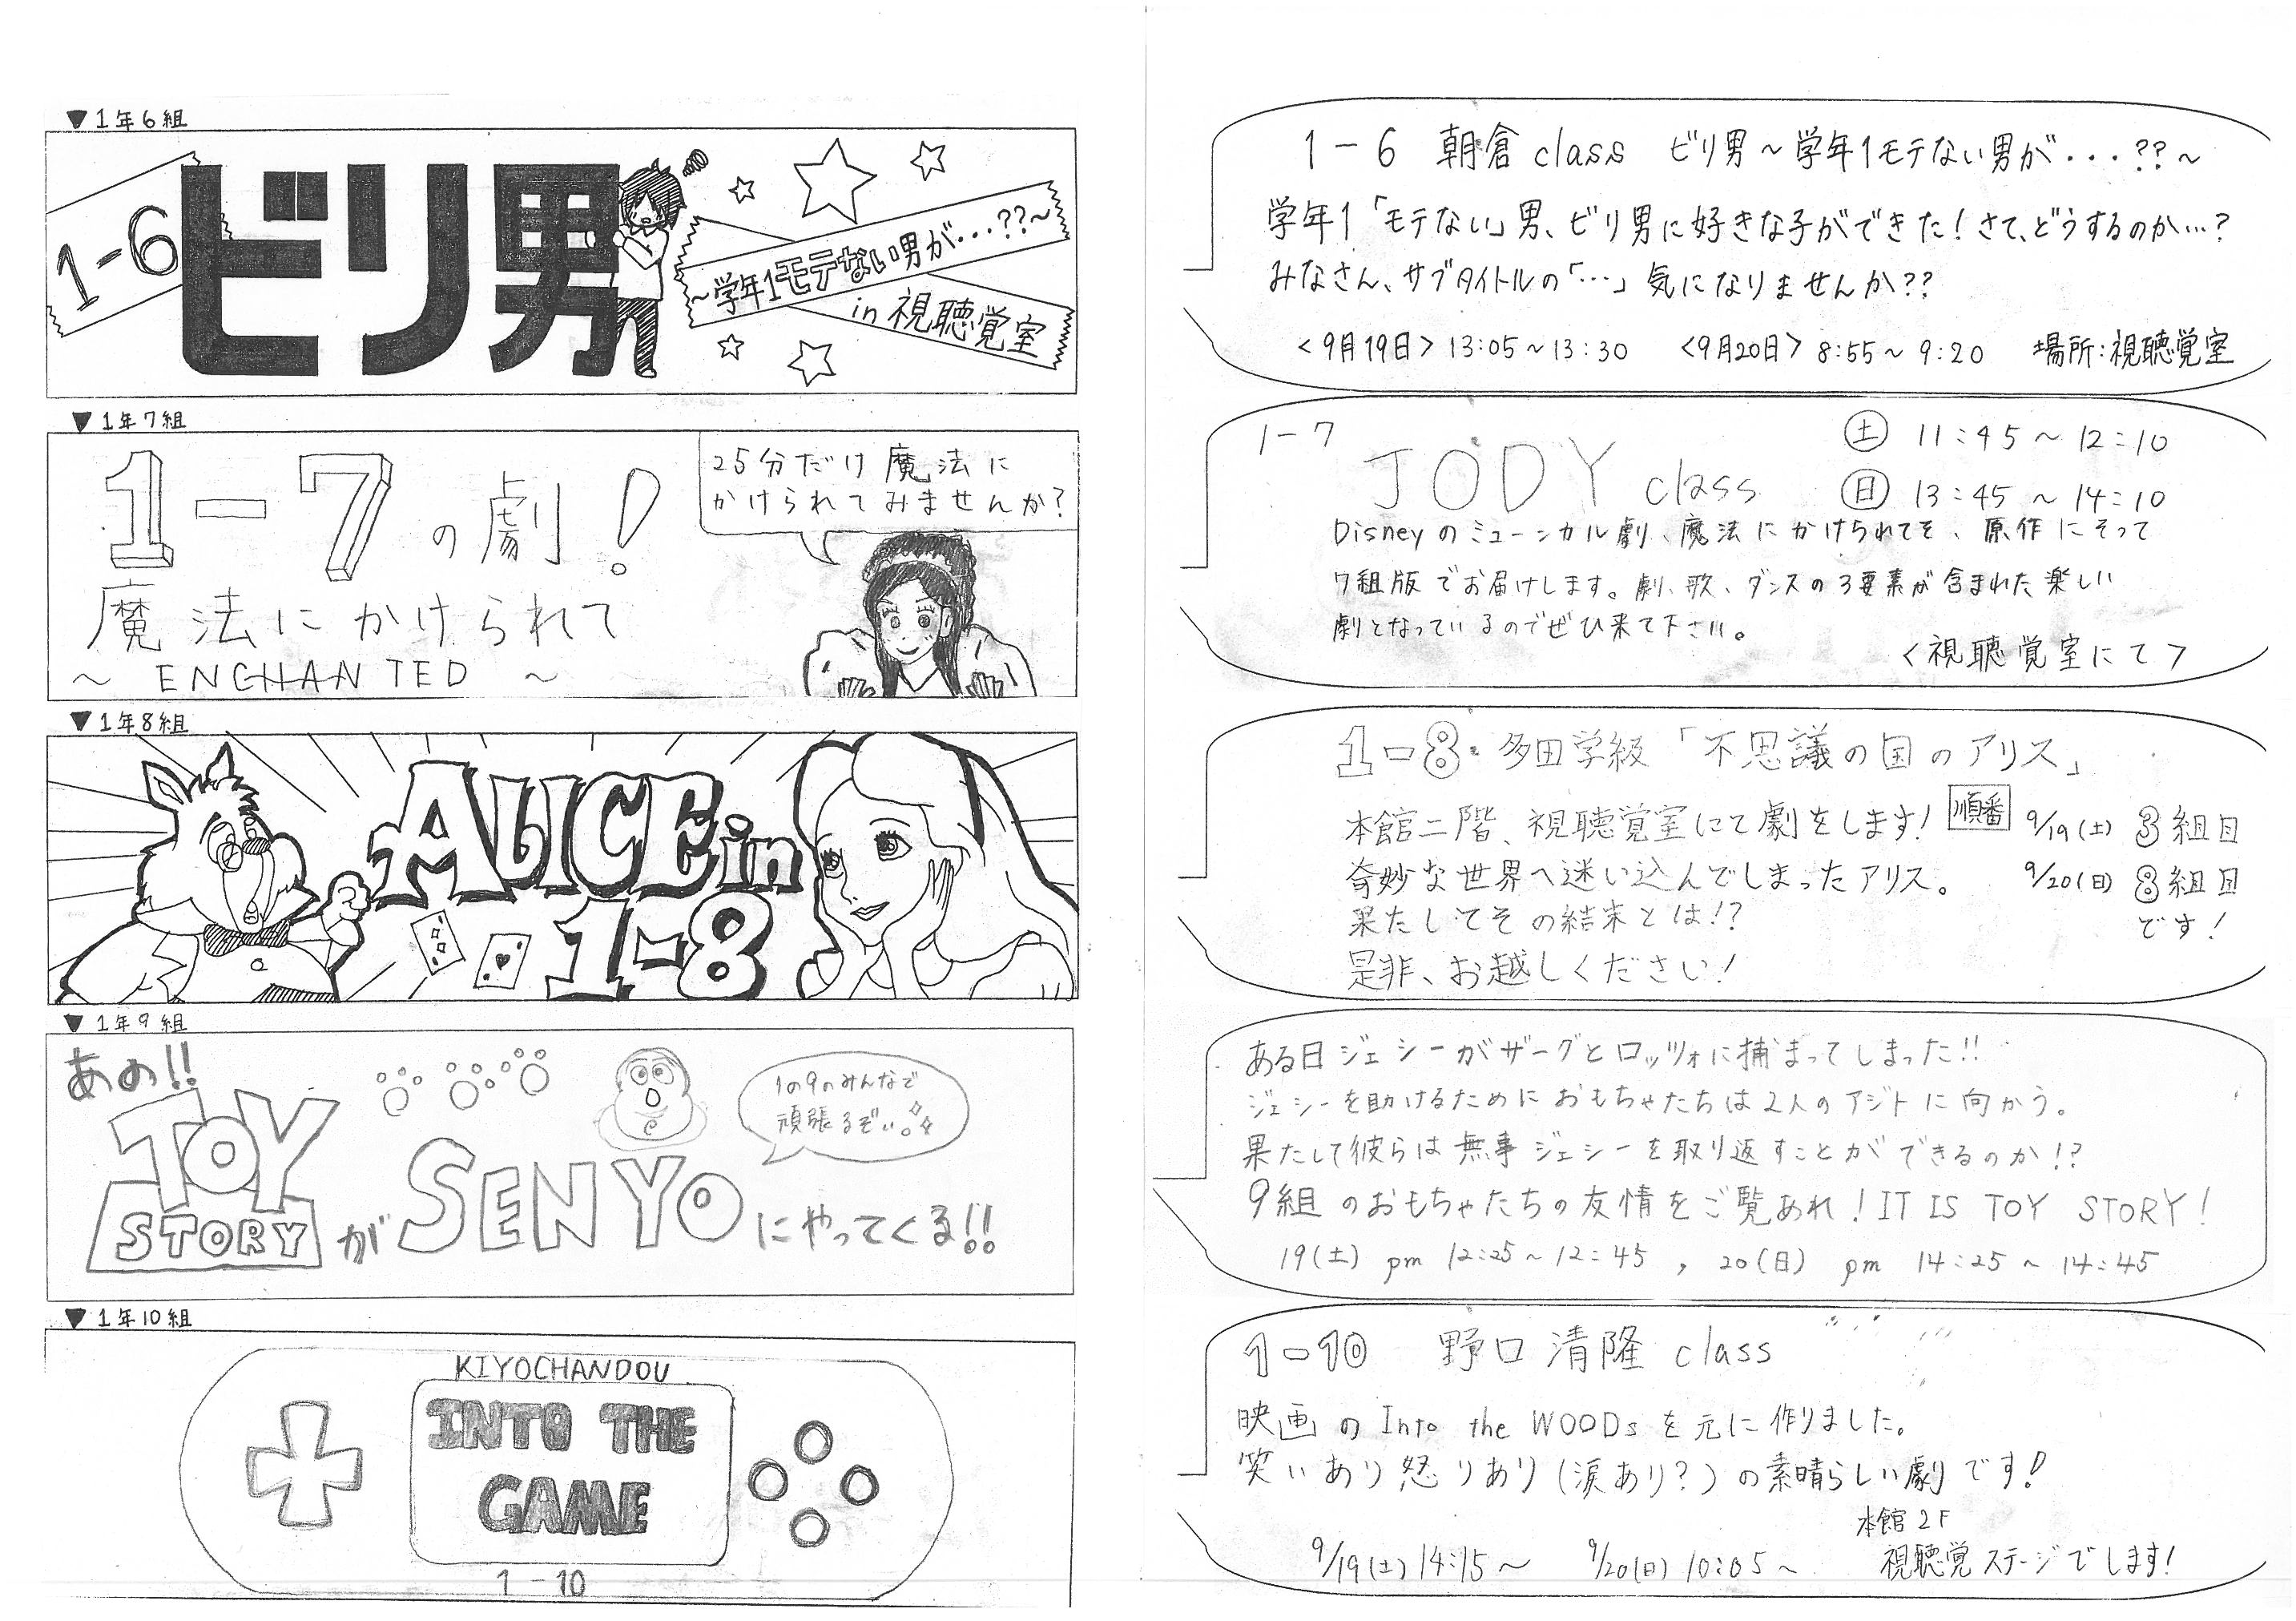 ▼1年6組
1-6
ビリ男
～学年1モテない男が・・・??～
in 視聴覚室
1-6 朝倉class ビリ男～学年1モテない男が・・・??～
学年1「モテない」男、ビリ男に好きな子ができた！さて、どうするのか…?
みなさん、サブタイトルの「…」気になりませんか??
<9月19日> 13:05～13:30 <9月20日> 8:55～9:20 場所:視聴覚室
▼1年7組
1-7の劇！
魔法にかけられて
～ ENCHANTED ～
25分だけ魔法に
かけられてみませんか?
1-7 JODY class
土 11:45～12:10
日 13:45～14:10
Disneyのミュージカル劇、魔法にかけられてを、原作にそって
7組版でお届けします。劇、歌、ダンスの3要素が含まれた楽しい
劇となっているのでぜひ来て下さい。
<視聴覚室にて>
▼1年8組
ALICE in
1-8
1-8・多田学級「不思議の国のアリス」
本館二階、視聴覚室にて劇をします！
奇妙な世界へ迷い込んでしまったアリス。
果たしてその結末とは!?
是非、お越しください！
順番 9/19(土) 3組目
9/20(日) 8組目
です！
▼1年9組
あの!!
TOY
STORY が SENYO にやってくる!!
1の9のみんなで
頑張るぞい。
ある日ジェシーがザーグとロッツォに捕まってしまった!!
ジェシーを助けるためにおもちゃたちは2人のアジトに向かう。
果たして彼らは無事ジェシーを取り返すことができるのか!?
9組のおもちゃたちの友情をご覧あれ！IT IS TOY STORY！
19(土) pm 12:25～12:45 , 20(日) pm 14:25～14:45
▼1年10組
KIYOCHANDOU
INTO THE
GAME
1-10
1-10 野口清隆 class
映画のInto the WOODsを元に作りました。
笑いあり怒りあり(涙あり?)の素晴らしい劇です！
本館2F
9/19(土) 14:15～ 9/20(日) 10:05～ 視聴覚ステージでします！